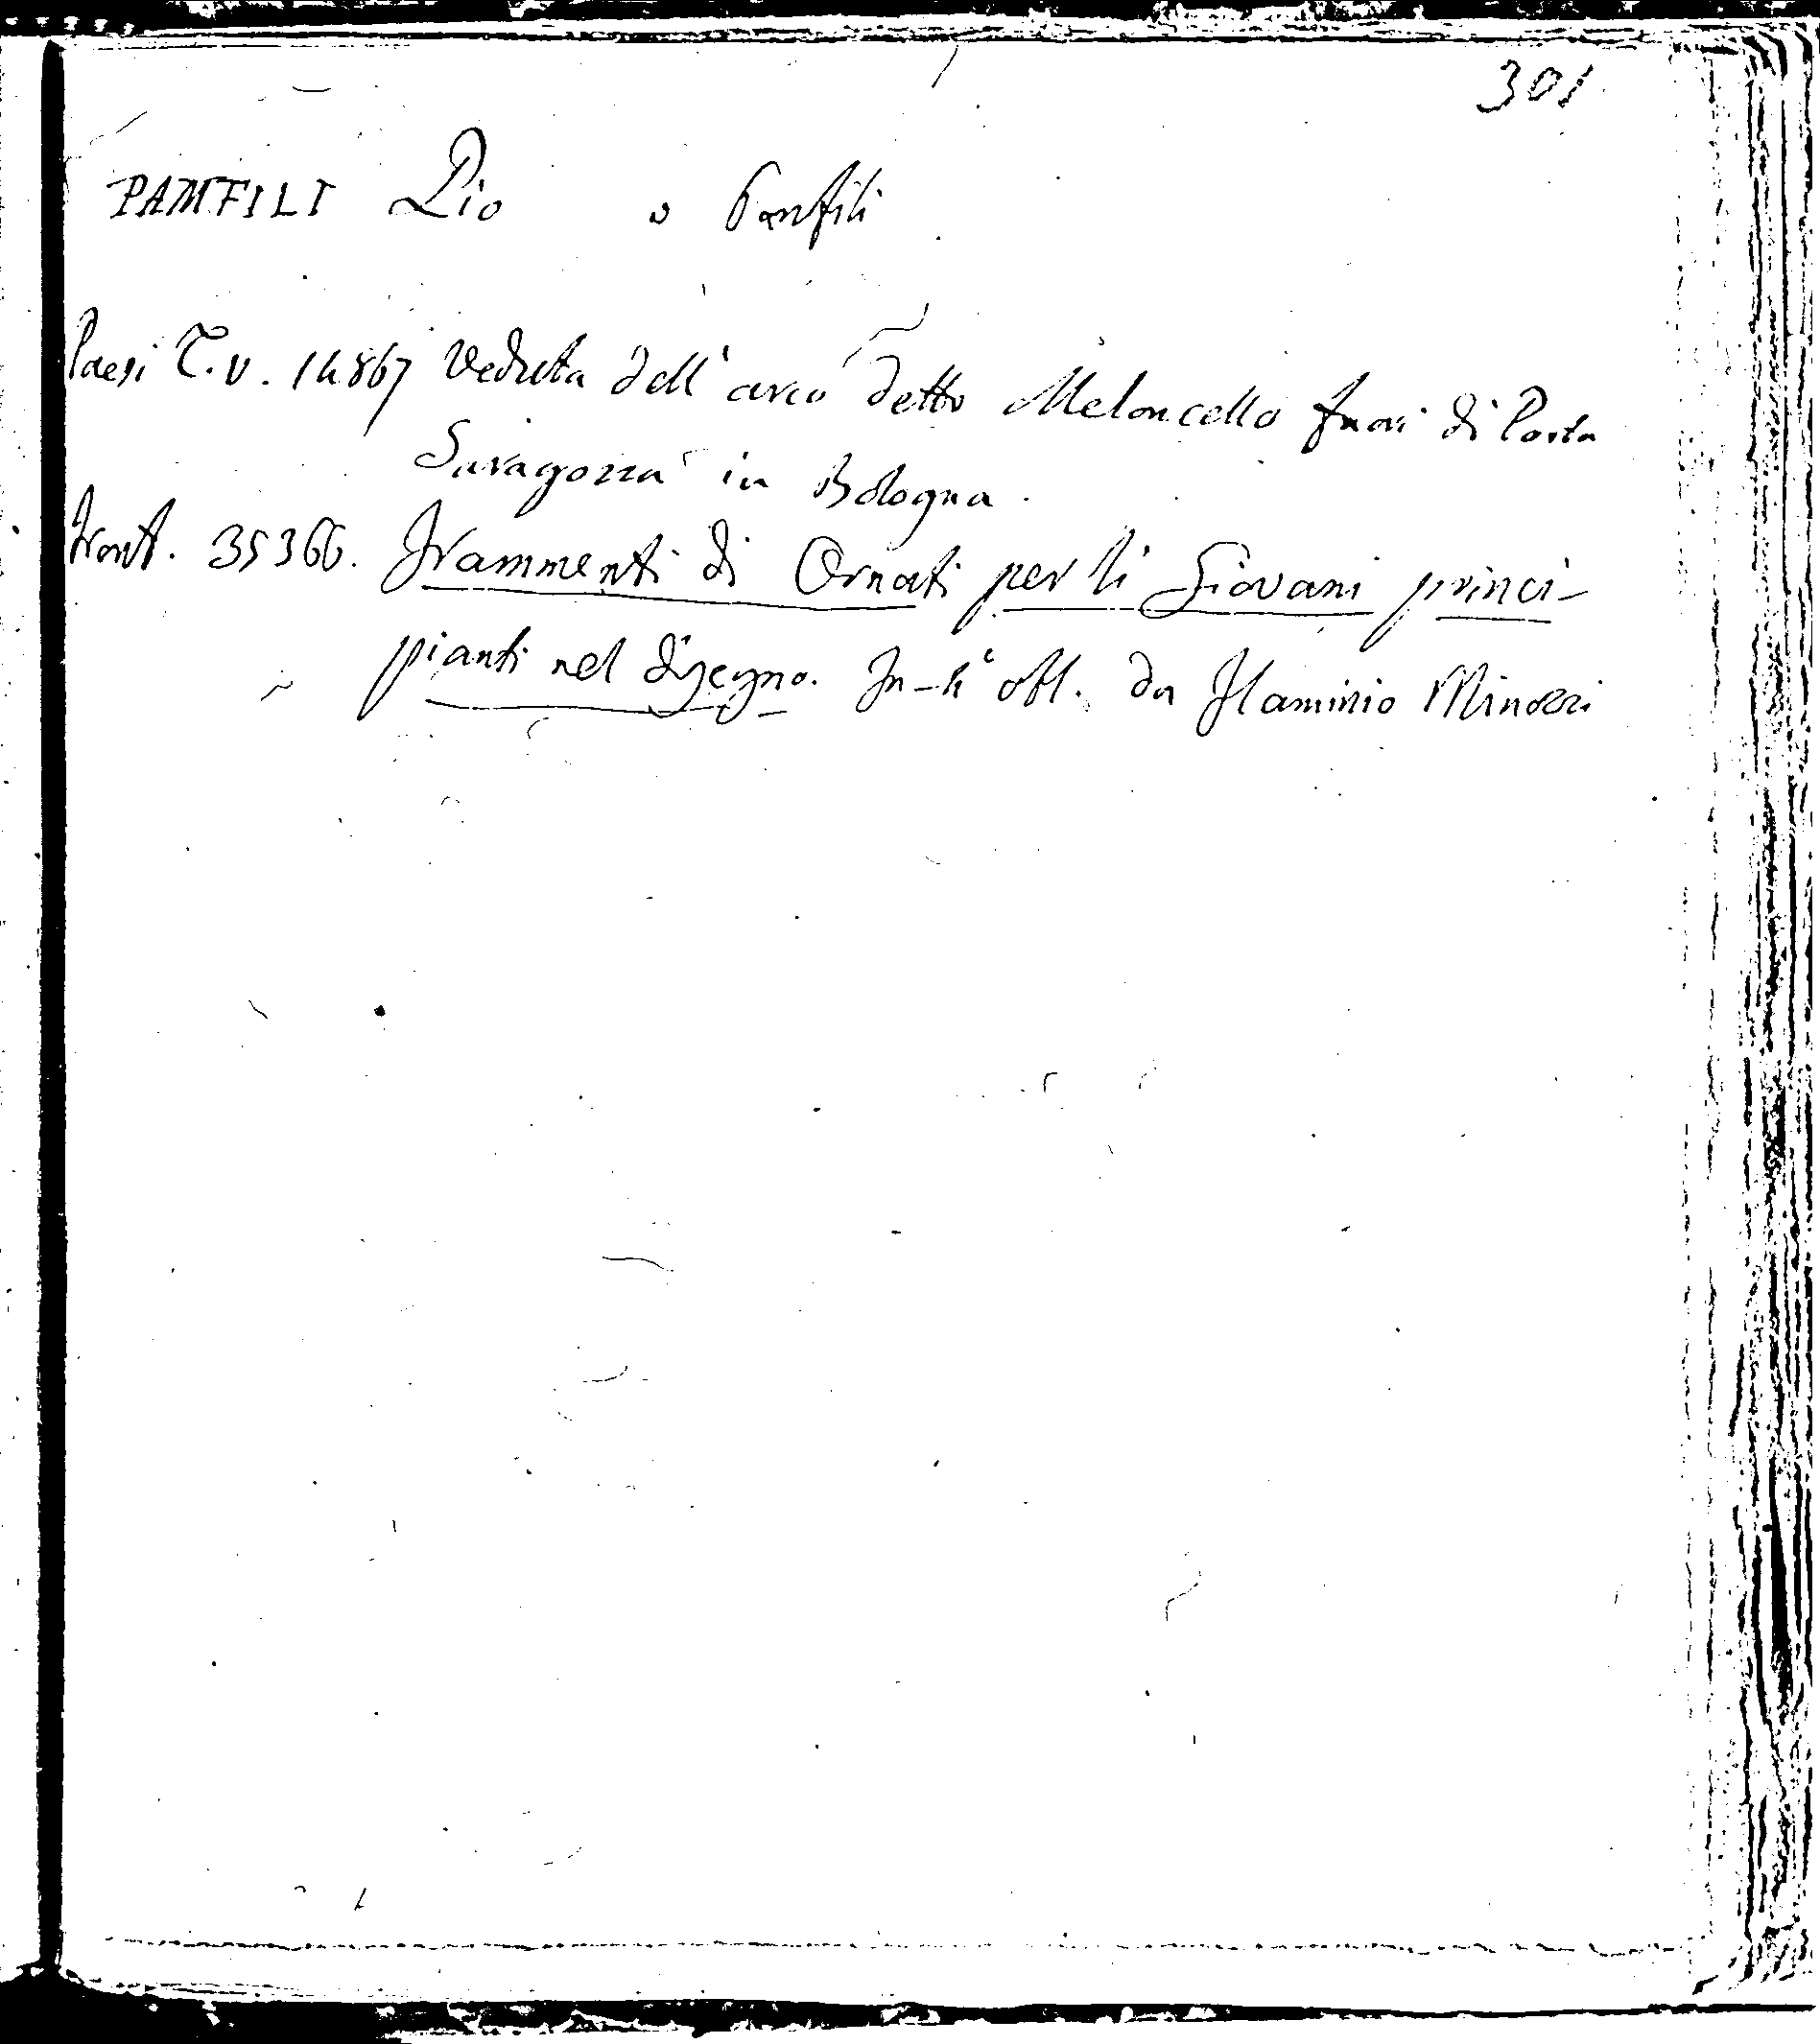 301
PAMFILI Pio o Panfili
Paesi T.V. 14867 Veduta dell'arco detto Meloncello fuori di Porta
Saragozza in Bologna.
Front. 35366. Frammenti di Ornati per li Giovani princi-
pianti nel disegno. In-4° obl. da Flaminio Minozzi